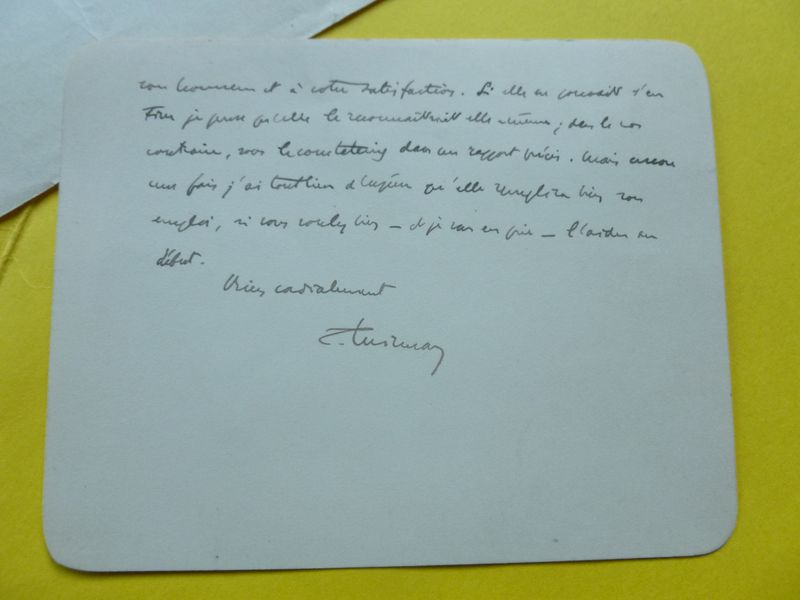 son honneur et à votre satisfaction. Si elle ne pouvait s'en
je pense qu'elle le reconnaîtrait elle-même ; dans le cas
contraire, vous le constateriez dans un rapport précis. Mais encore
une fois j'ai tout lieu d'espérer qu'elle remplira bien son
emploi, si vous voulez bien — et je vous en prie — l'aider au
début.
Bien cordialement